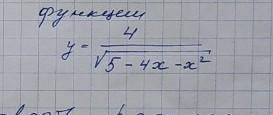 функции
y = 4 / √(5 - 4x - x²)